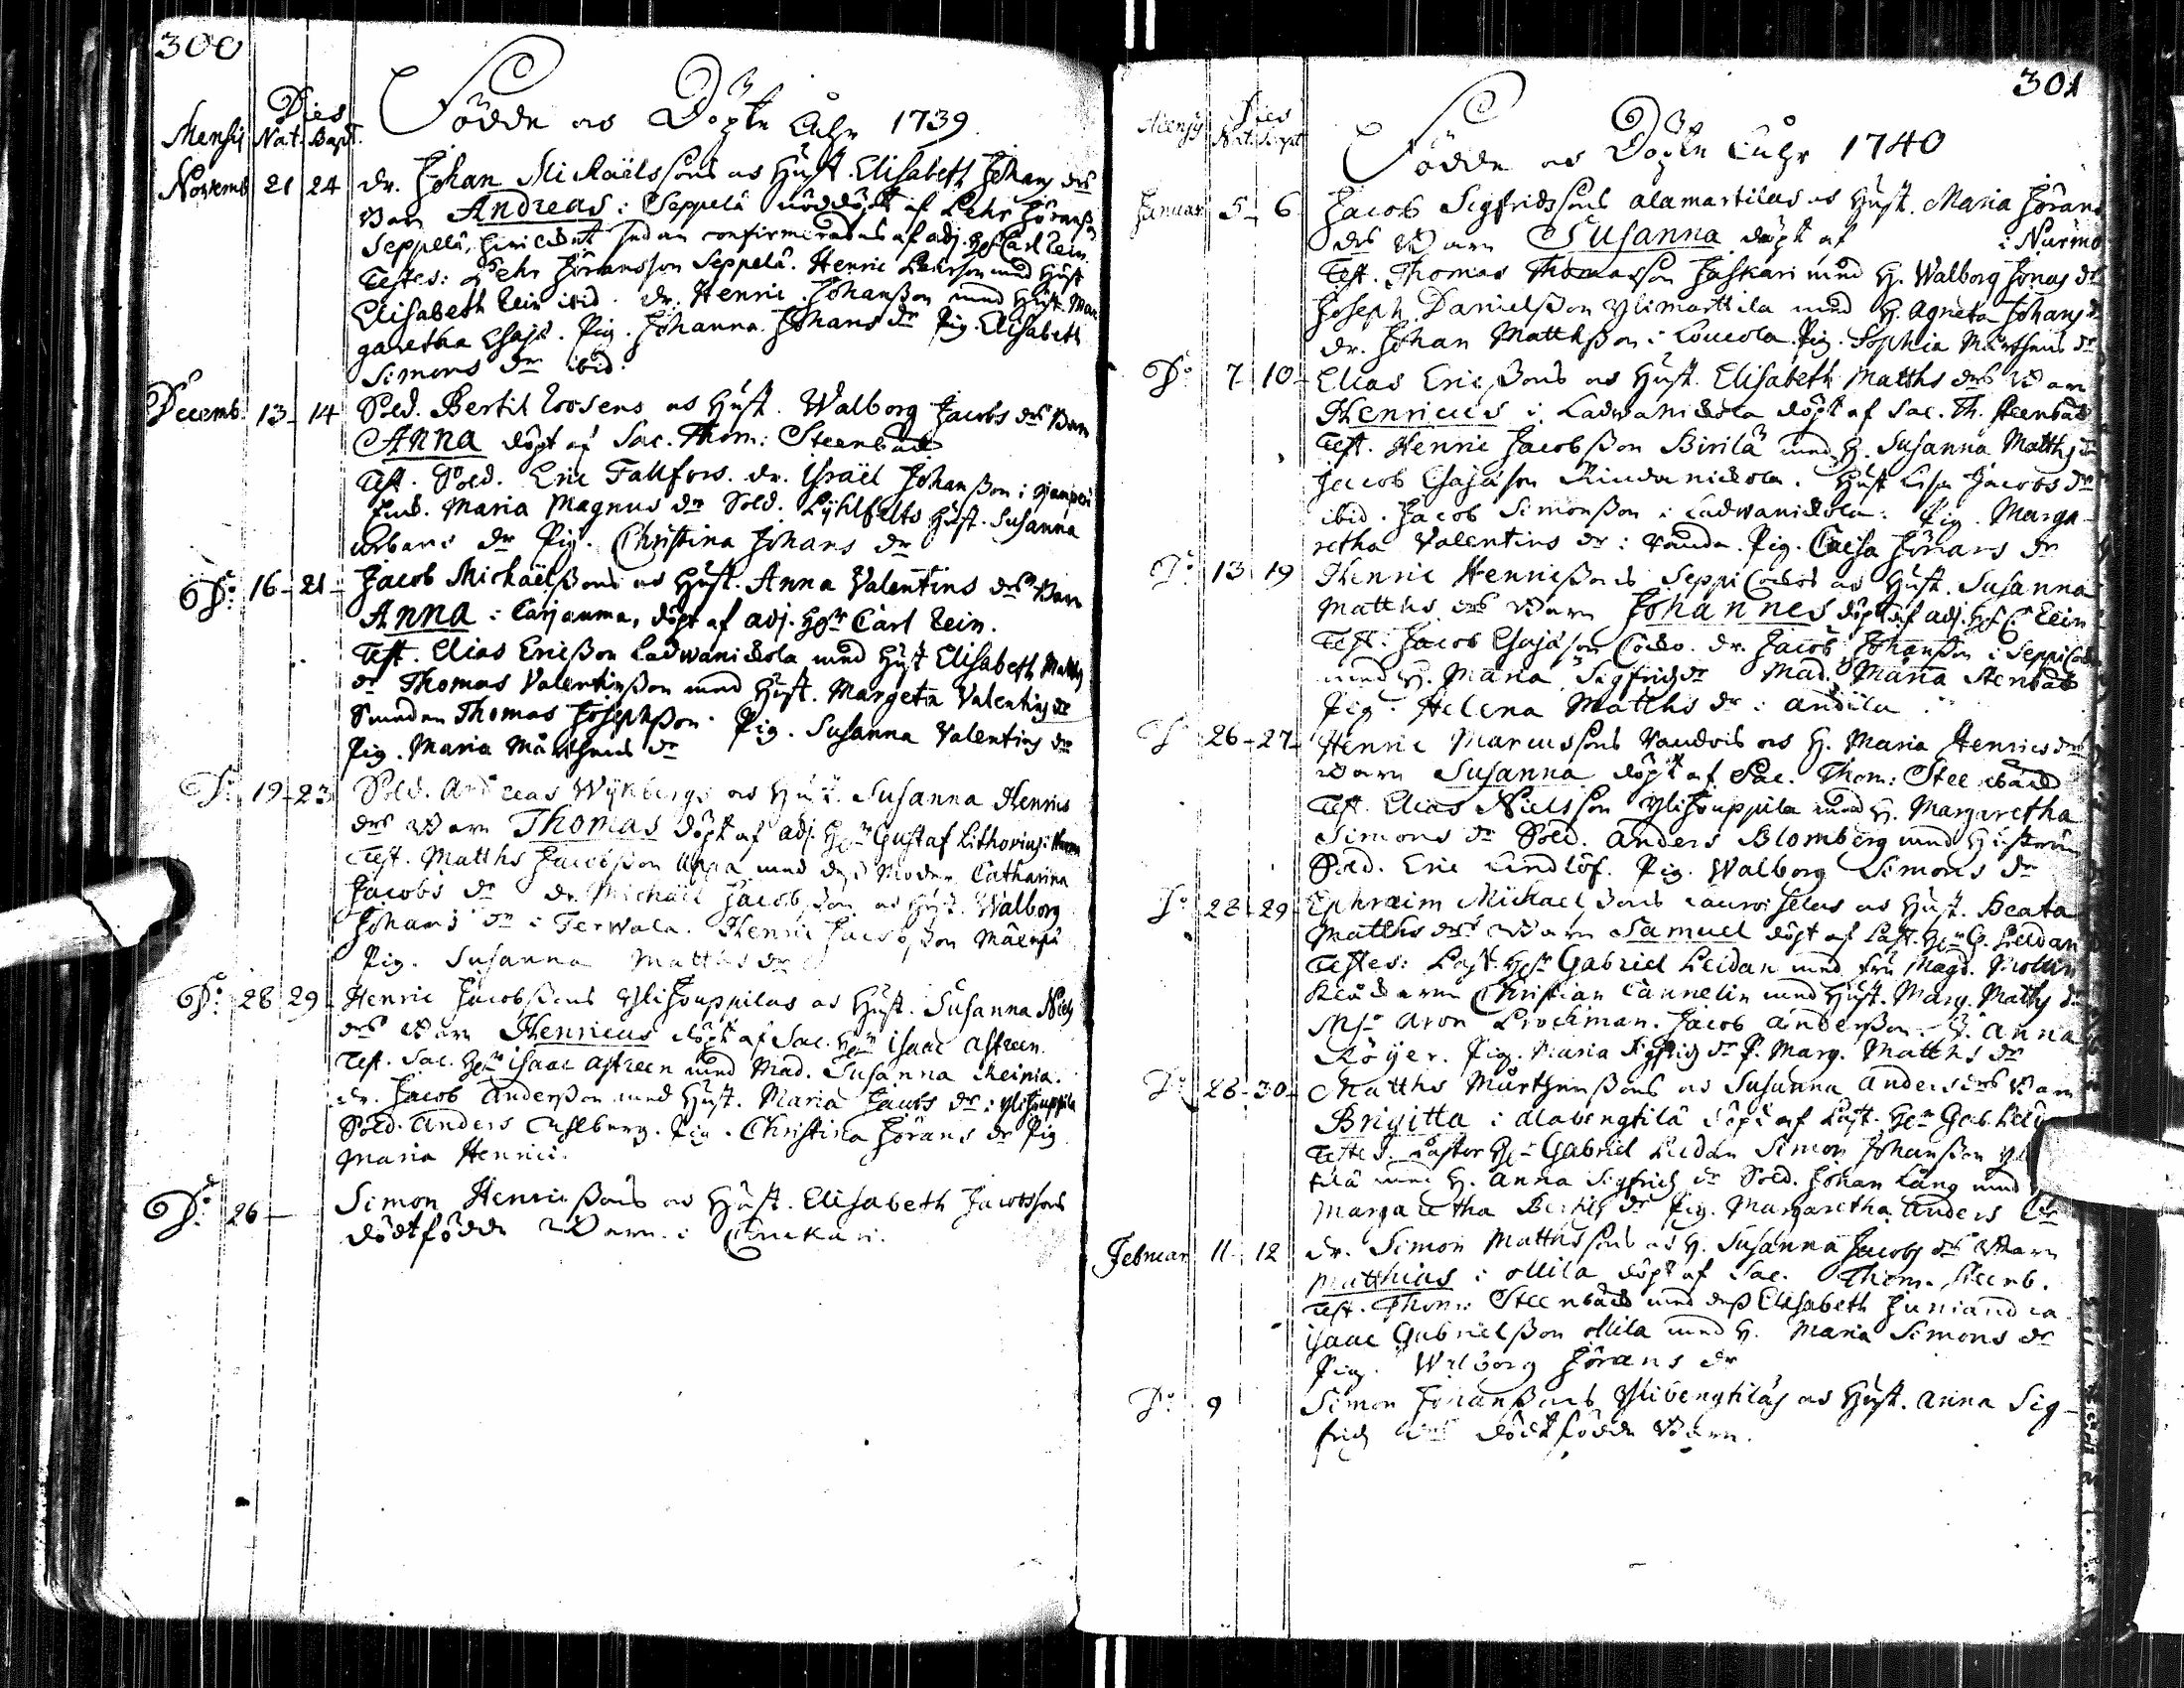 300
Dies
Mensis Nat. Bapt.
Födde och Döpte Åhr 1739
Novemb 21 24 dr. Johan Michaëlssons och Hust. Elisabeth Johans drs
Barn Andreas i Seppelä nöddöpt af Pehr Jöransson
Seppelä, sedan confirmerades af adj. Hr Carl Rein.
Testes: Pehr Jöransson Seppelä. Henric Pehrson med Hust
Elisabeth Rein ibid. dr. Henric Johansson med Hust. Mar
garetha Esajæ. Pig. Johanna Johans dr Pig. Elisabeth
Simons dr ibid.
Decemb. 13 - 14 Sold. Bertil Roosens och Hust. Walborg Jacobs drs Barn
Anna döpt af Sac. Thom: Steenbäck
Test. Sold. Eric Fallfors. dr. Israël Johansson i
Maria Magnus dr Sold. Lyhlfelts Hust. Susanna
Urbans dr Pig. Christina Johans dr
Do: 16 - 21 - Jacob Michaëlssons och Hust. Anna Valentins drs Barn
Anna i Carjanma, döpt af adj. Hr Carl Rein.
Test. Elias Ericsson Ladwanickola med Hust Elisabeth Matths
dr Thomas Valentinsson med Hust. Margeta Valentins dr
Thomas Josephsson. Pig. Susanna Valentins dr
Pig. Maria Mårthens dr
Do: 19 - 23 Sold. Andreas Wykbergs och Hust. Susanna Henrics
drs Barn Thomas döpt af adj. Hr Gustaf Lithovius
Test. Matths Jacobsson Appa med dess Moder Catharina
Jacobs dr dr. Michaël Jacobsson och Hust. Walborg
Johans dr i Terwala. Henric Jacobsson Mäenpä
Pig. Susanna Matths dr
Do: 28 29 - Henric Jacobssons Ylihouppilas och Hust. Susanna Niels
drs Barn Henricus döpt af Sac. Hr Isaac Astreen.
Test. Sac. Hr Isaac Astreen med Mad. Susanna Meinia.
dr. Jacob Andersson med Hust. Maria Jacobs dr i Ylihouppila
Sold. Anders Ahlberg. Pig. Christina Jörans dr Pig
Maria Henrici.
Do: 26 - Simon Henricssons och Hust. Elisabeth Jacobssons
dödfödde Barn i
301
Mensis Dies
Nat. Bapt
Födde och Döpte Åhr 1740
Januar. 5 - 6 Jacob Sigfridssons Alamartilas och Hust. Maria Jörans
drs Barn Susanna döpt af i Nurmo
Test. Thomas Thomasson Jaskari med H. Walborg Jonas dr
Joseph Danielsson Ylimarttila med H. Agneta Johans dr
dr. Johan Matthsson i Loucola. Pig. Sophia Mårthens dr
Do: 7 - 10 - Elias Ericssons och Hust. Elisabeth Matths drs Barn
Henricus i Ladwanickola döpt af Sac. Th. Steenbäck
Test. Henric Jacobsson Birilä med H. Susanna Matths dr
Jacob Esajæson Rindanickola. Hust Lisa Jacobs dr
ibid. Jacob Simonsson i Ladwanickola. Pig. Marga-
retha Valentins dr i Pig. Caisa Jörans dr
Do: 13 19 Henric Henricssons Seppi Cockos och Hust. Susanna
Matths drs Barn Johannes döpt af adj. Hr C: Rein
Test. Jacob Esajæson Cocko. dr. Jacob Johansson i Seppi
med H. Maria Sigfrids dr Mad. Maria Stenbäck
Pig. Helena Matths dr i Andila
Do 26 - 27 - Henric Marcussons och H. Maria Henrics drs
Barn Susanna döpt af Sac. Thom: Steenbäck
Test. Elias Nielsson Ylihouppila med H. Margaretha
Simons dr Sold. Anders Blomberg med Hustrun
Sold. Eric Lindlöf. Pig. Walborg Simons dr
Do: 28 - 29 - Ephraim Michaelssons och Hust. Beata
Matths drs Barn Samuel döpt af Past. Hr G. Peldan
Testes: Past. Hr Gabriel Peldan med Fru Magd. Mollin
Christian Cannelin med Hust. Marg. Matths dr
Aron Brockman. Jacob Andersson. P. Anna
Röyer. Pig. Maria Sigfrids dr P. Marg. Matths dr
Do: 26 - 30 - Matths Mårthenssons och Susanna Anders drs Barn
Brigitta i Alabengtilä döpt af Past. Hr Gab. Peld
Testes. Pastor Hr Gabriel Peldan Simon Johansson Yl
tilä med H. Anna Sigfrids dr Sold. Johan Lång med
Margaretha Bertils dr Pig. Margaretha Anders dr
Februar 11 - 12 dr. Simon Matthssons och H. Susanna Jacobs drs Barn
Matthias i Ollila döpt af Sac. Thom. Steenb.
Test. Thom: Steenbäck med dess Elisabeth Juniandra
Isaac Gabrielsson Ollila med H. Maria Simons dr
Pig. Walborg Jörans dr
Do: 9 Simon Johanssons Ylibengtiläs och Hust. Anna Sig-
frids drs dödfödde Barn.